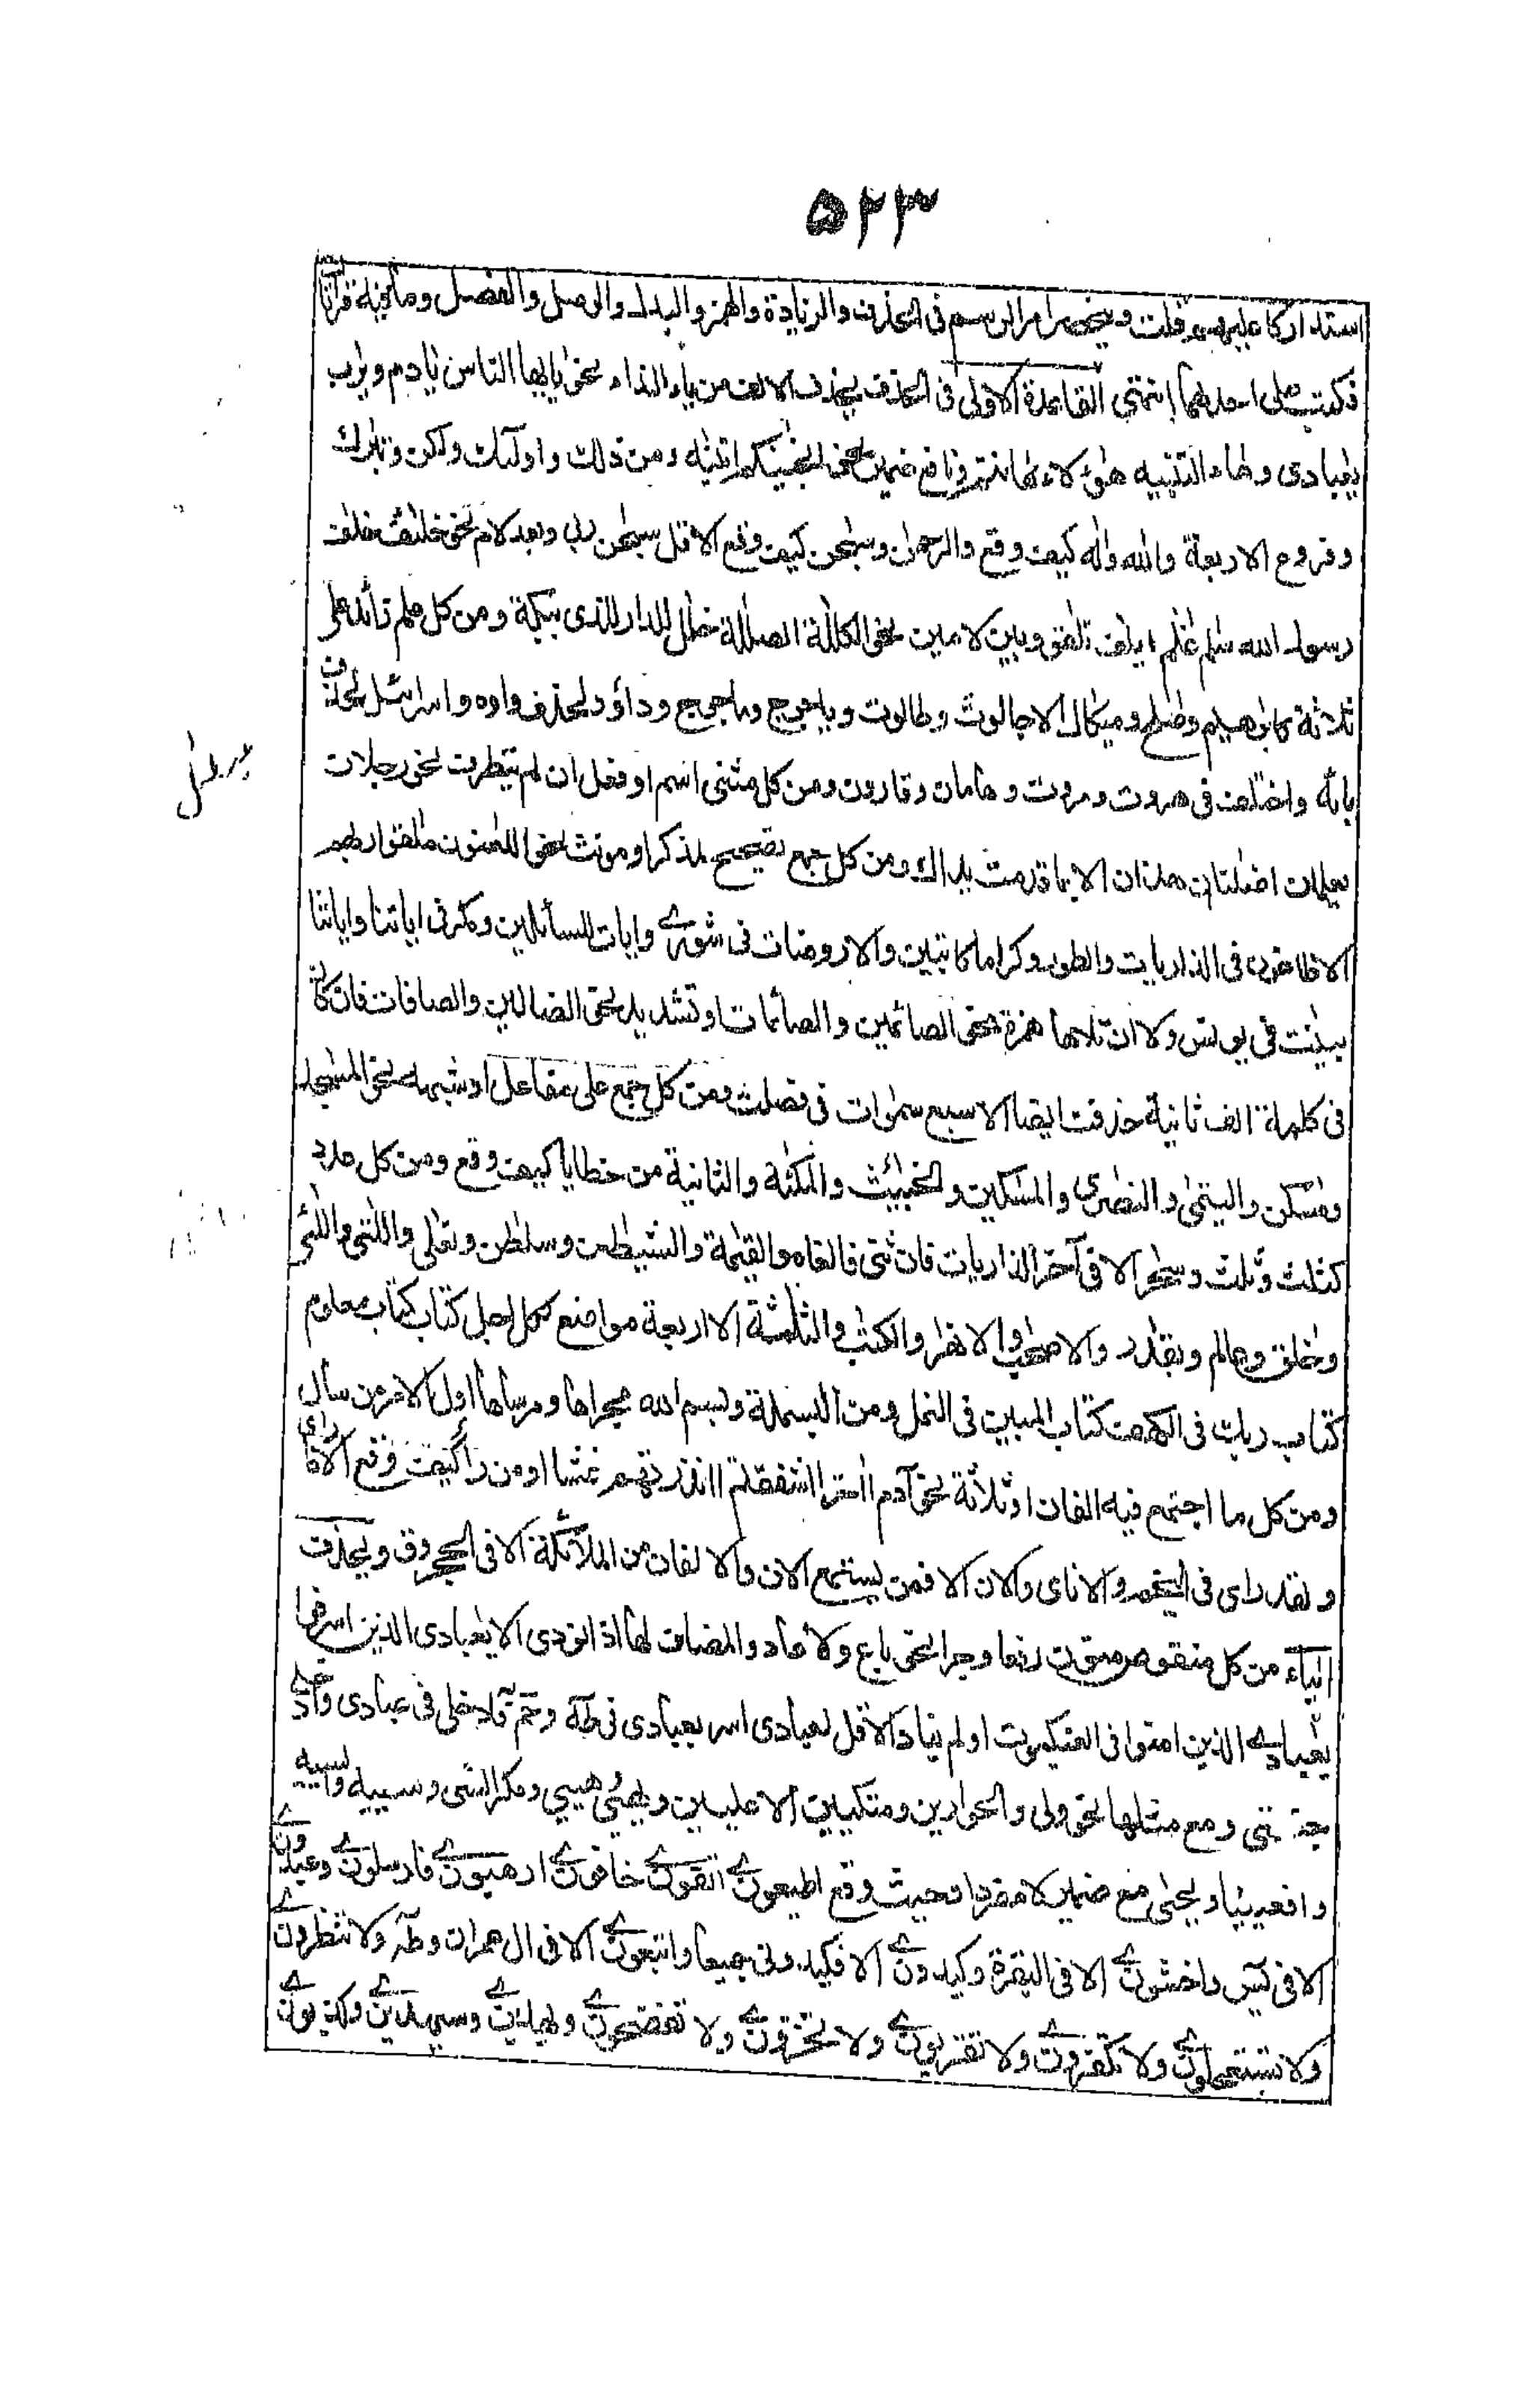 ۵۲۳
استدراكا عليهم قلت وينحصر امر الرسم في الحذف والزيادة والهمز والبدل والوصل والفصل وما فيه قرآتان
فكتب على احدلهما انتهى القاعدة الاولى في الحذف يحذف الالف من ياء النداء نحو يايها الناس يادم ويرب
يعبادى وهاء التنبيه هؤلاء هانتم ونا مع ضمير نحو انجينكم اتينه ومن ذلك واولئك ولكن وتبرك
وفروع الاربعة والله واله كيف وقع والرحمن وسبحن كيف وقع الا قل سبحن ربى وبعد لام نحو خلئف خلف
رسول الله سلم غلم ايلف تلقو وبين لامين نحو الكللة الضللة خلل للدار للذى ببكة ومن كل علم زائد على
ثلاثة كابرهيم وصلح وميكال الا جالوت وطالوت وياجوج وماجوج وداؤد لحذف واوه واسرائيل لحذف
يائه واختلف في هروت ومروت وهامان وقارون ومن كل مثنى اسم او فعل ان لم يتطرف نحو رجلان
يعلمان اضلنان هذان الا بما قدمت يداك ومن كل جمع تصحيح لمذكر او مونث نحو اللعنون ملقوا ربهم
الا طاغون فى الذاريات والطور وكراما كاتبين والا روضات فى شورى وايات للسائلين ومكر فى اياتنا واياتنا
بينت فى يونس ولا ان تلاها همزة نحو الصائمين والصائمات او تشديد نحو الضالين والصافات فان كانت
فى كلمة الف ثانية حذفت ايضا الا سبع سموات فى فصلت ومن كل جمع على مفاعل او شبهه نحو المسجد
ومسكن واليتمى والنصرى والمسكين والخبئث والملئكة والثانية من خطايا كيف وقع ومن كل عدد
كثلث وثلث وسحر الا فى آخر الذاريات فان ثنى فالفاه والقيمة والشيطن وسلطن وتعلى واللتى واللئى
وخلق وعلم وبقدر والاصحب والانهر والكتب والثلثة الا اربعة مواضع لكل اجل كتاب كتاب معلوم
كتاب ربك فى الكهف كتاب المبين فى النمل ومن البسملة وبسم الله مجراها ومرساها اول الامر من سال
ومن كل ما اجتمع فيه الفان او ثلاثة نحو آدم آخر ااشفقتم اانذرتهم غثا ا ومن را كيف وقع الا ما راى
ولقد راى فى النجم والا ناى والان الا فمن يستمع الان والالفان من الملائكة الا فى الحجر وق ويحذف
الياء من كل منقوص منون رفعا وجرا نحو باغ ولا عاد والمضاف لها اذا نودى الا يعبادى الذين اسرفوا
يعبادى الذين امنوا فى العنكبوت او لم يناد الا قل لعبادى اسر بعبادى فى طه وحم فادخلى فى عبادى وادخلى
جنتى ومع مثلها نحو ولى والحوارين ومتكئين الا عليين ويهيئ هيئ ومكر السئ وسيئة والسيئة
وافعيينا ويحيى مع ضمير لا مفردا وحيث وقع اطيعون اتقون خافون ارهبون فارسلون وعبدون
الا فى يس واخشون الا فى البقرة وكيدون الا فكيدونى جميعا واتبعون الا فى ال عمران وطه ولا تنظرون
ولا تستعجلون ولا تكفرون ولا تقربون ولا تخزون ولا تفضحون ويهدين وسيهدين وكذبون